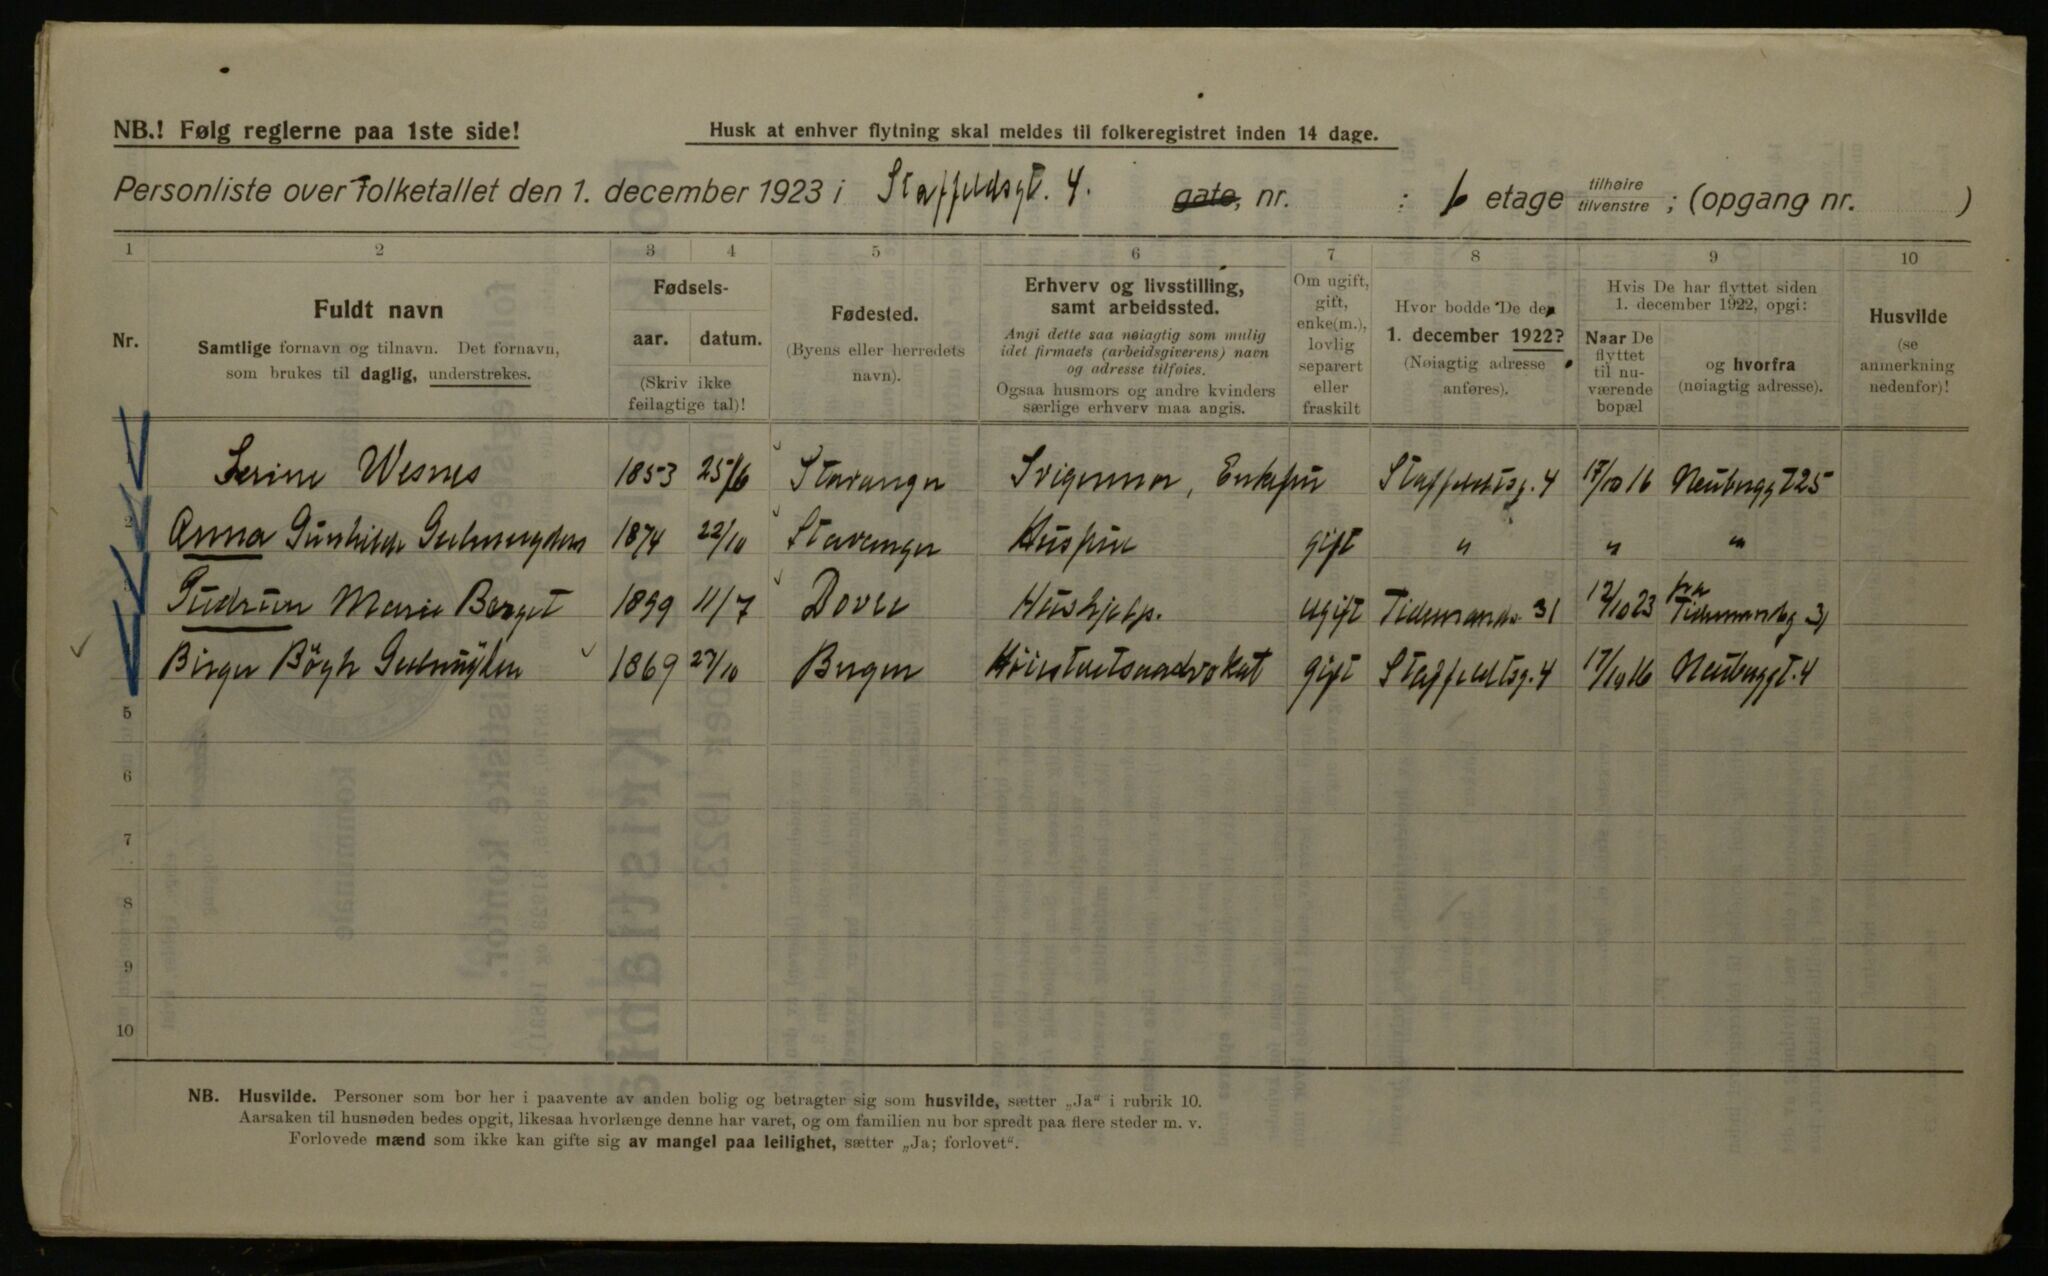 NB.! Følg reglerne paa 1ste side!
Husk at enhver flytning skal meldes til folkeregistret inden 14 dage.
Personliste over folketallet den 1. december 1923 i Staffeldsgt. 4. gate, nr. : 6 etage tilhøire tilvenstre ; (opgang nr. )
1 2 3 4 5 6 7 8 9 10
Nr.
Fuldt navn
Samtlige fornavn og tilnavn. Det fornavn,
som brukes til daglig, understrekes.
Fødsels-
aar. datum.
(Skriv ikke
feilagtige tal)!
Fødested.
(Byens eller herredets
navn).
Erhverv og livsstilling,
samt arbeidssted.
Angi dette saa nøiagtig som mulig
idet firmaets (arbeidsgiverens) navn
og adresse tilføies.
Ogsaa husmors og andre kvinders
særlige erhverv maa angis.
Om ugift,
gift,
enke(m.),
lovlig
separert
eller
fraskilt
Hvor bodde De den
1. december 1922?
(Nøiagtig adresse
anføres).
Hvis De har flyttet siden
1. december 1922, opgi:
Naar De
flyttet
til nu-
værende
bopæl
og hvorfra
(nøiagtig adresse).
Husvilde
(se
anmerkning
nedenfor)!
Serine Wesnes 1853 25/6 Stavanger Svigermor, Enkefru Staffeldtsg. 4 17/10 16 Neuberggt 25
2 Anna Gunhilde 1874 22/10 Stavanger Husfrue gift " " "
3 Gudrun Marie Berget 1899 11/7 Dovre Hushjelp. ugift Tidemands 31 12/10 23 fra Tidemandsg 31
Birger Bögh 1869 27/10 Bergen Höiesteretsadvokat gift Staffeldtsg. 4 17/10 16 Neuberggt. 4
5
6
7
8
9
10
NB. Husvilde. Personer som bor her i paavente av anden bolig og betragter sig som husvilde, sætter „Ja“ i rubrik 10.
Aarsaken til husnøden bedes opgit, likesaa hvorlænge denne har varet, og om familien nu bor spredt paa flere steder m. v.
Forlovede mænd som ikke kan gifte sig av mangel paa leilighet, sætter „Ja; forlovet“.